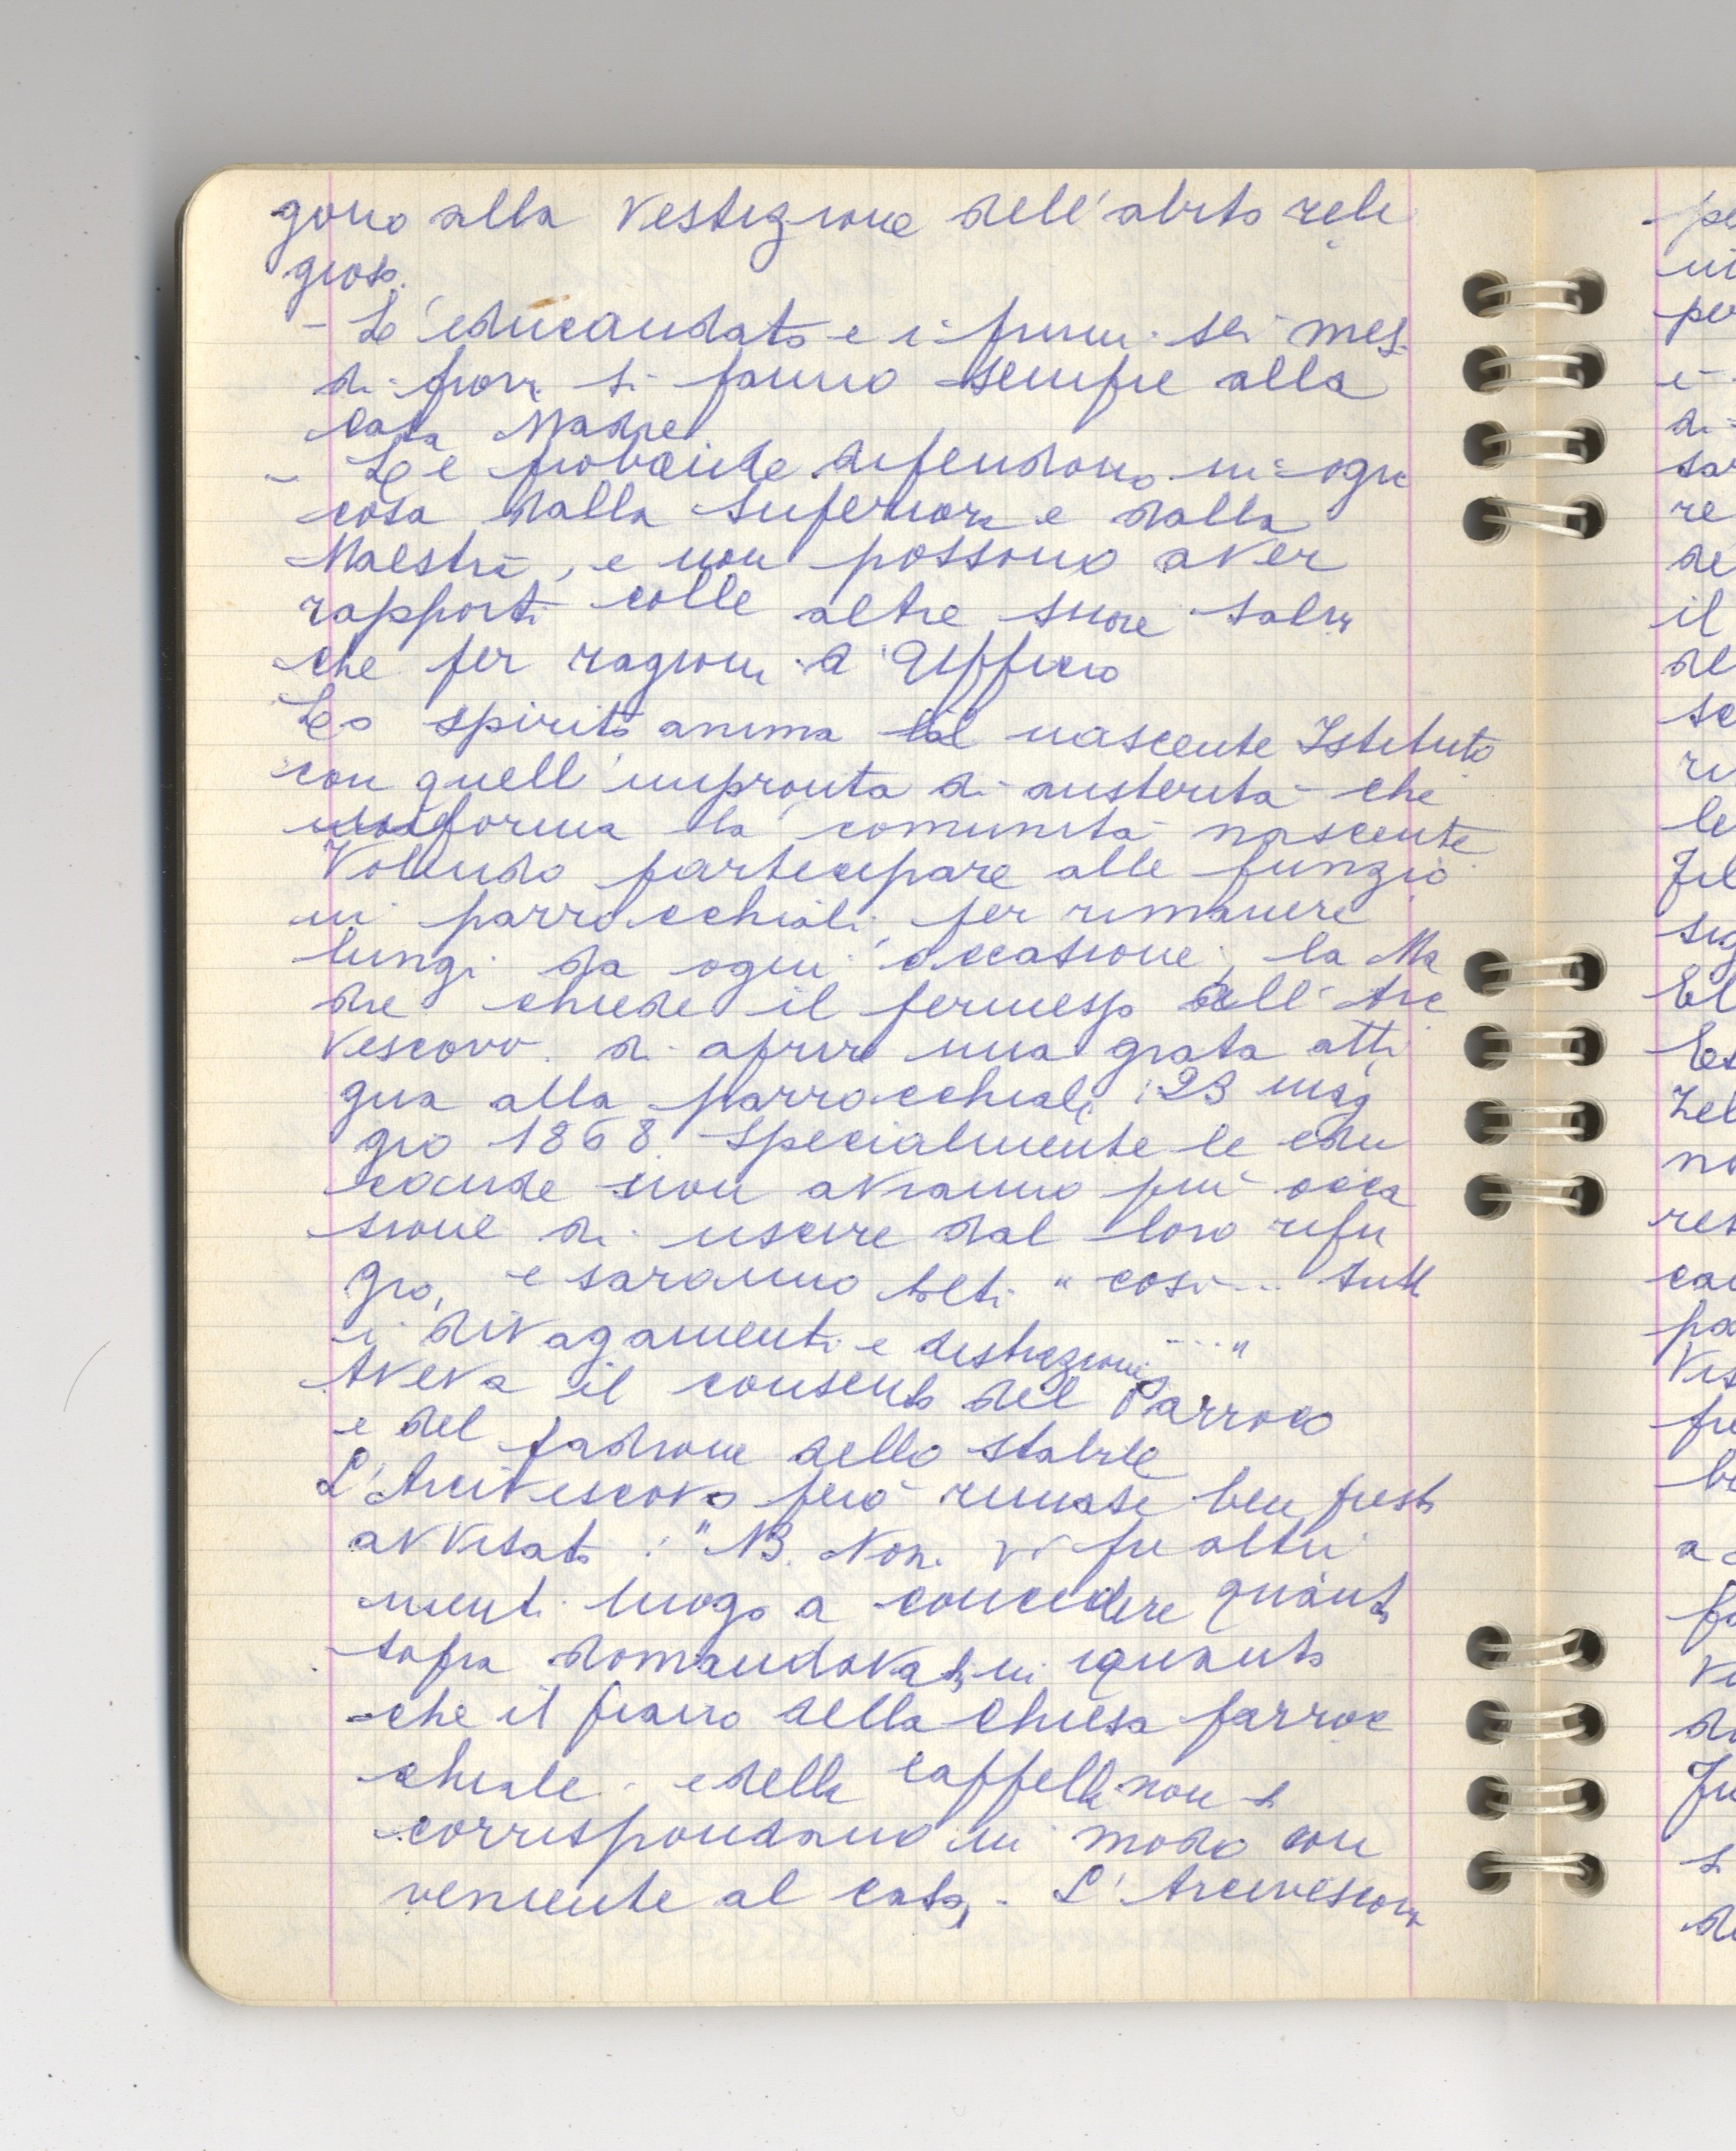 gono alla Vestizione dell'abito reli
gioso.
- L'educandato e i primi sei mesi
di prova si fanno sempre alla
Casa Madre
- Le probande dipendono in ogni
cosa dalla Superiora e dalla
Maestra, e non possono aver
rapporti colle altre suore salvo
che per ragioni d'Ufficio
Lo spirito anima tal nascente Istituto
con quell'impronta di austerità che
informa la comunità nascente
Volendo partecipare alle funzio
ni parrocchiali, per rimanere
lungi da ogni occasione, la Ma
dre chiede il permesso all'Arc
Vescovo di aprire una grata atti
gua alla parrocchiale: 23 mag
gio 1868. Specialmente le edu
cande non avranno più occa
sione di uscire dal loro rifu
gio, e saranno tolti "così... tutti
i divagamenti e distrazioni ...."
Aveva il consenso del Parroco
e del padrone dello stabile
L'Arcivescovo però rimase ben presto
avvisato: "NB. Non vi fu altri
menti luogo a concedere quanto
sopra domandavasi, in quanto
che il piano della Chiesa parroc
chiale e della Cappella non si
corrispondano in modo con
veniente al caso. - L'Arcivescovo
pe
ni
per
e
di
sar
re
de
il
de
se
ri
le
Fil
sig
El
Es
Zel
no
res
ca
pa
Vis
pre
be
a
pa
Ve
di
Fu
si
de